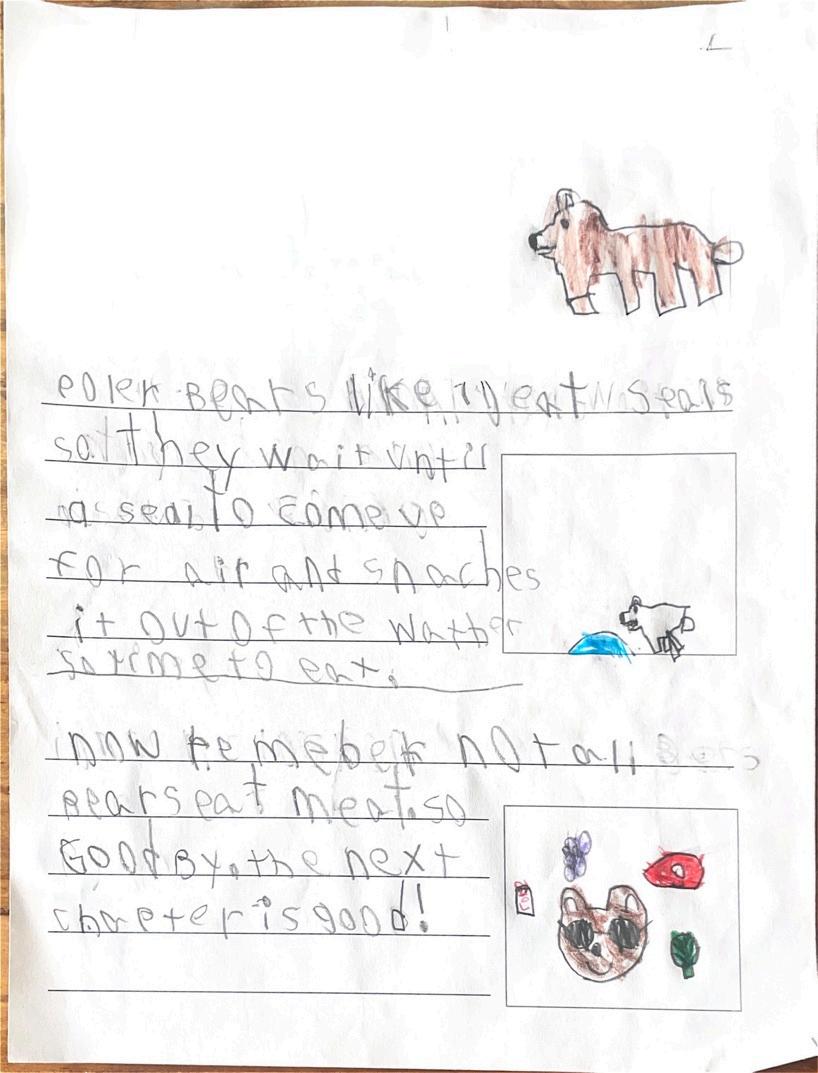 poler Bears like to eat seals
so they wait until
a seal to come up
for air and snaches
it out of the watter
so time to eat.
now remeber not all
Bears eat meat. so
Good By. the next
chapter is good!